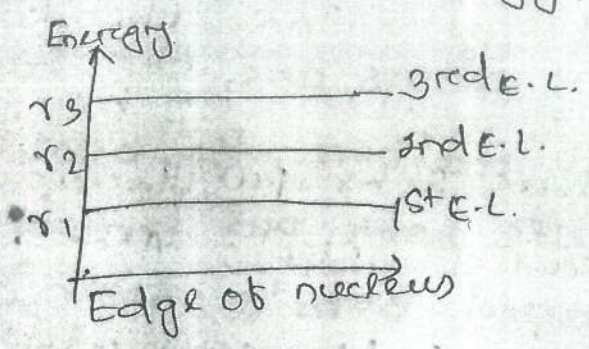 Energy
r3 3rd E.L.
r2 2nd E.L.
r1 1st E.L.
Edge of nucleus